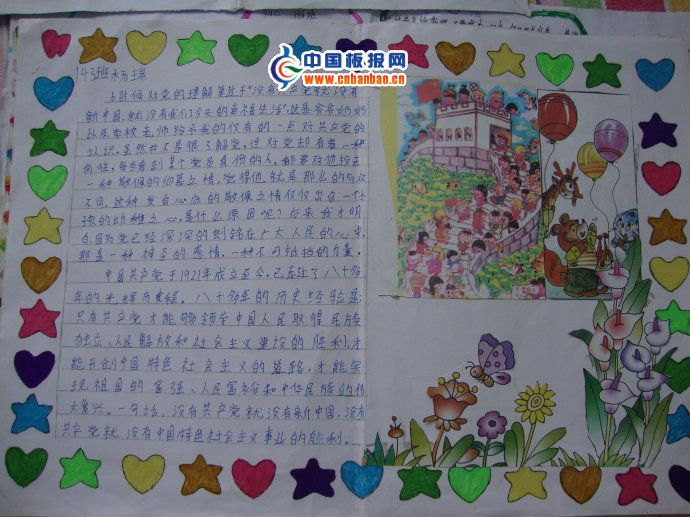 中国板报网
www.cnbanbao.cn
143班 杨瑞
小时候对党的理解莫过于“没有共产党就没有
新中国，就没有我们今天的幸福生活”，这是爷爷奶奶
以及学校老师给予我的仅有的一点对共产党的
认识。虽然并不是很了解党，但对党却有着一种
向往。每当看到某个党员身份的人，都要对他投去
一种敬佩的仰慕之情，觉得他就是那么的与众
不同。这种发自心底的敬佩之情仅仅出自一个
孩的幼稚之心，是什么原因呢？后来我才明
白，因为党已经深深的刻铭在广大人民的心中，
那是一种神圣的感情，一种不可抵挡的力量。
中国共产党于1921年成立至今，已走过了八十多
年的光辉历史程。八十多年的历史经验是：
只有共产党才能够领导中国人民取得民族
独立、人民解放和社会主义建设的胜利，才
能开创中国特色社会主义的道路，才能实
现祖国的富强、人民富裕和中华民族的伟
大复兴。一句话，没有共产党就没有新中国，没有
共产党就没有中国特色社会主义事业的胜利。